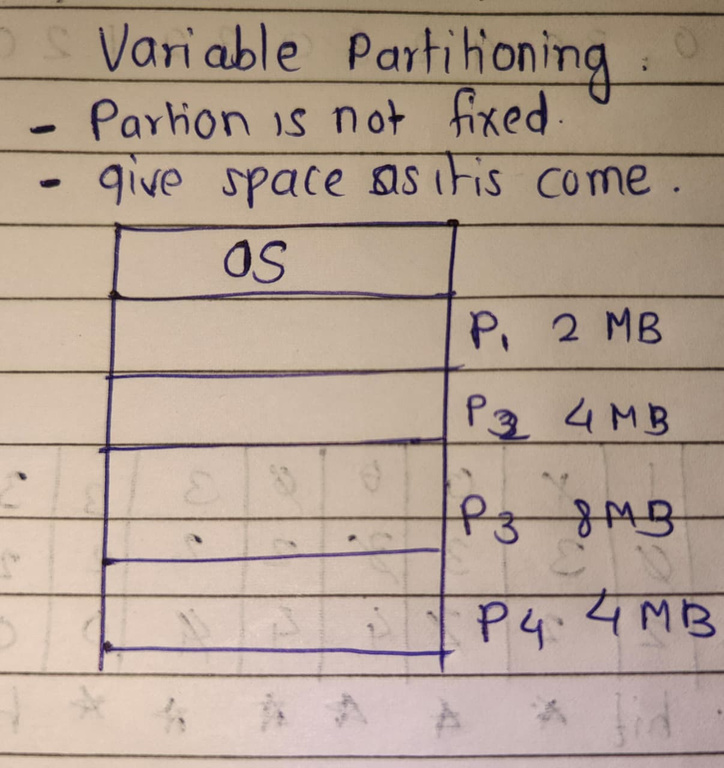 Variable Partitioning :
- Partion is not fixed.
- give space as it is come .
OS
P1 2 MB
P2 4 MB
P3 8 MB
P4 4 MB